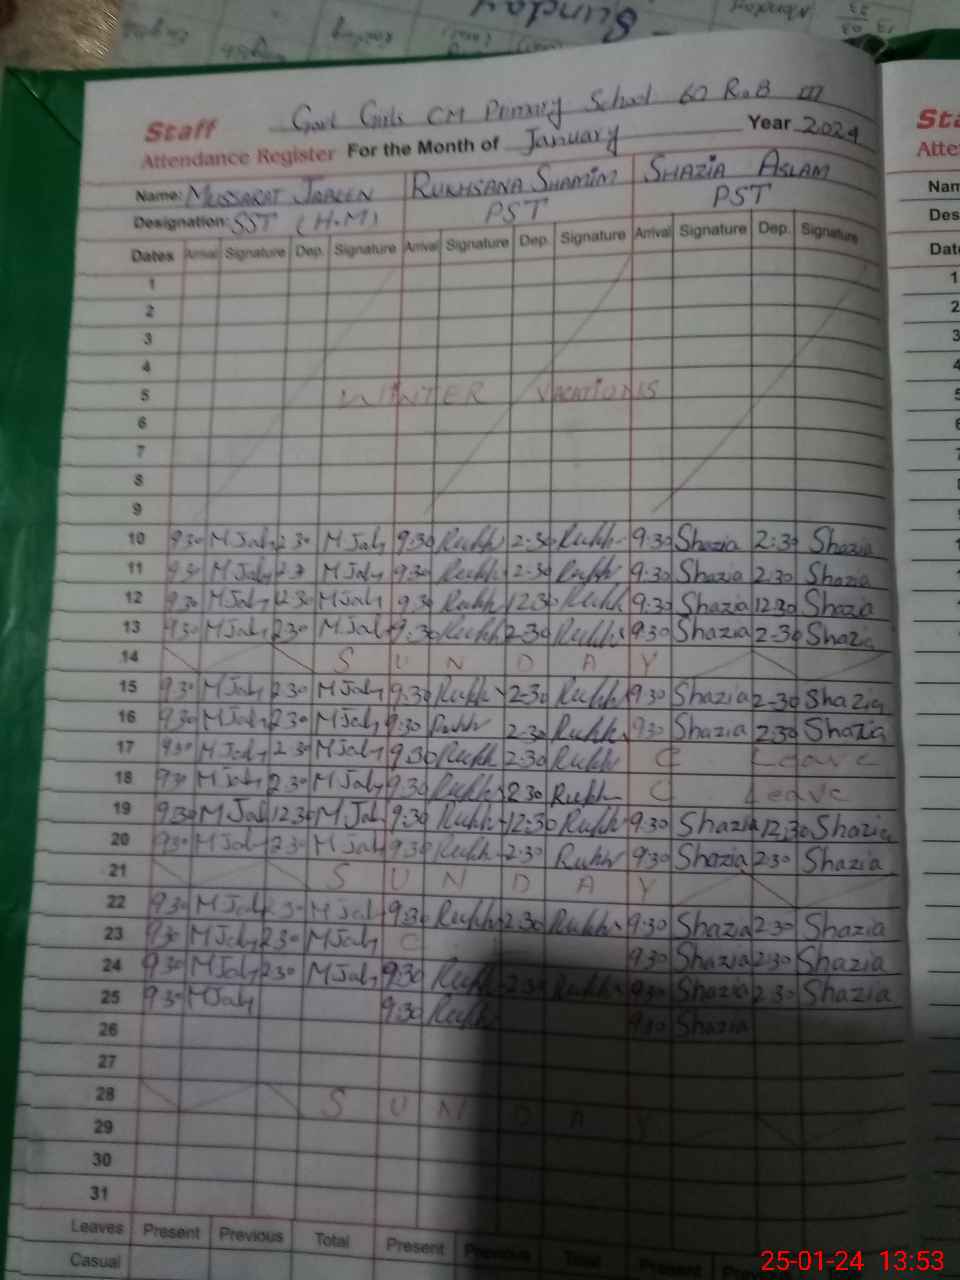 Sunday
Monday
Staff
Govt Girls CM Primary School 60 R.B
Attendance Register For the Month of January Year 2024
Name: MUSSARAT JABEEN RUKHSANA SHAMIM SHAZIA ASLAM
Designation: SST (H.M) PST PST
Dates Arrival Signature Dep. Signature Arrival Signature Dep. Signature Arrival Signature Dep. Signature
1
2
3
4
5 WINTER VACATIONS
6
7
8
9
10 9:30 MJab 2:30 MJab 9:30 Rukh 2:30 Rukh 9:30 Shazia 2:30 Shazia
11 9:30 MJab 2:3 MJab 9:30 Rukh 2:30 Rukh 9:30 Shazia 2:30 Shazia
12 9:30 MJab 12:30 MJab 9:30 Rukh 12:30 Rukh 9:30 Shazia 12:30 Shazia
13 9:30 MJab 2:30 MJab 9:30 Rukh 2:30 Rukh 9:30 Shazia 2:30 Shazia
14 SUNDAY
15 9:30 MJab 2:30 MJab 9:30 Rukh 2:30 Rukh 9:30 Shazia 2:30 Shazia
16 9:30 MJab 2:30 MJab 9:30 Rukh 2:30 Rukh 9:30 Shazia 2:30 Shazia
17 9:30 MJab 2:30 MJab 9:30 Rukh 2:30 Rukh C Leave
18 9:30 MJab 2:30 MJab 9:30 Rukh 2:30 Rukh C Leave
19 9:30 MJab 12:30 MJab 9:30 Rukh 12:30 Rukh 9:30 Shazia 12:30 Shazia
20 9:30 MJab 2:30 MJab 9:30 Rukh 2:30 Rukh 9:30 Shazia 2:30 Shazia
21 SUNDAY
22 9:30 MJab 2:30 MJab 9:30 Rukh 2:30 Rukh 9:30 Shazia 2:30 Shazia
23 9:30 MJab 2:30 MJab C 9:30 Shazia 2:30 Shazia
24 9:30 MJab 2:30 MJab 9:30 Rukh 2:30 Rukh 9:30 Shazia 2:30 Shazia
25 9:30 MJab 9:30 Rukh 9:30 Shazia
26
27
28 SUNDAY
29
30
31
Leaves Present Previous Total Present Previous Total Present
Casual
25-01-24 13:53